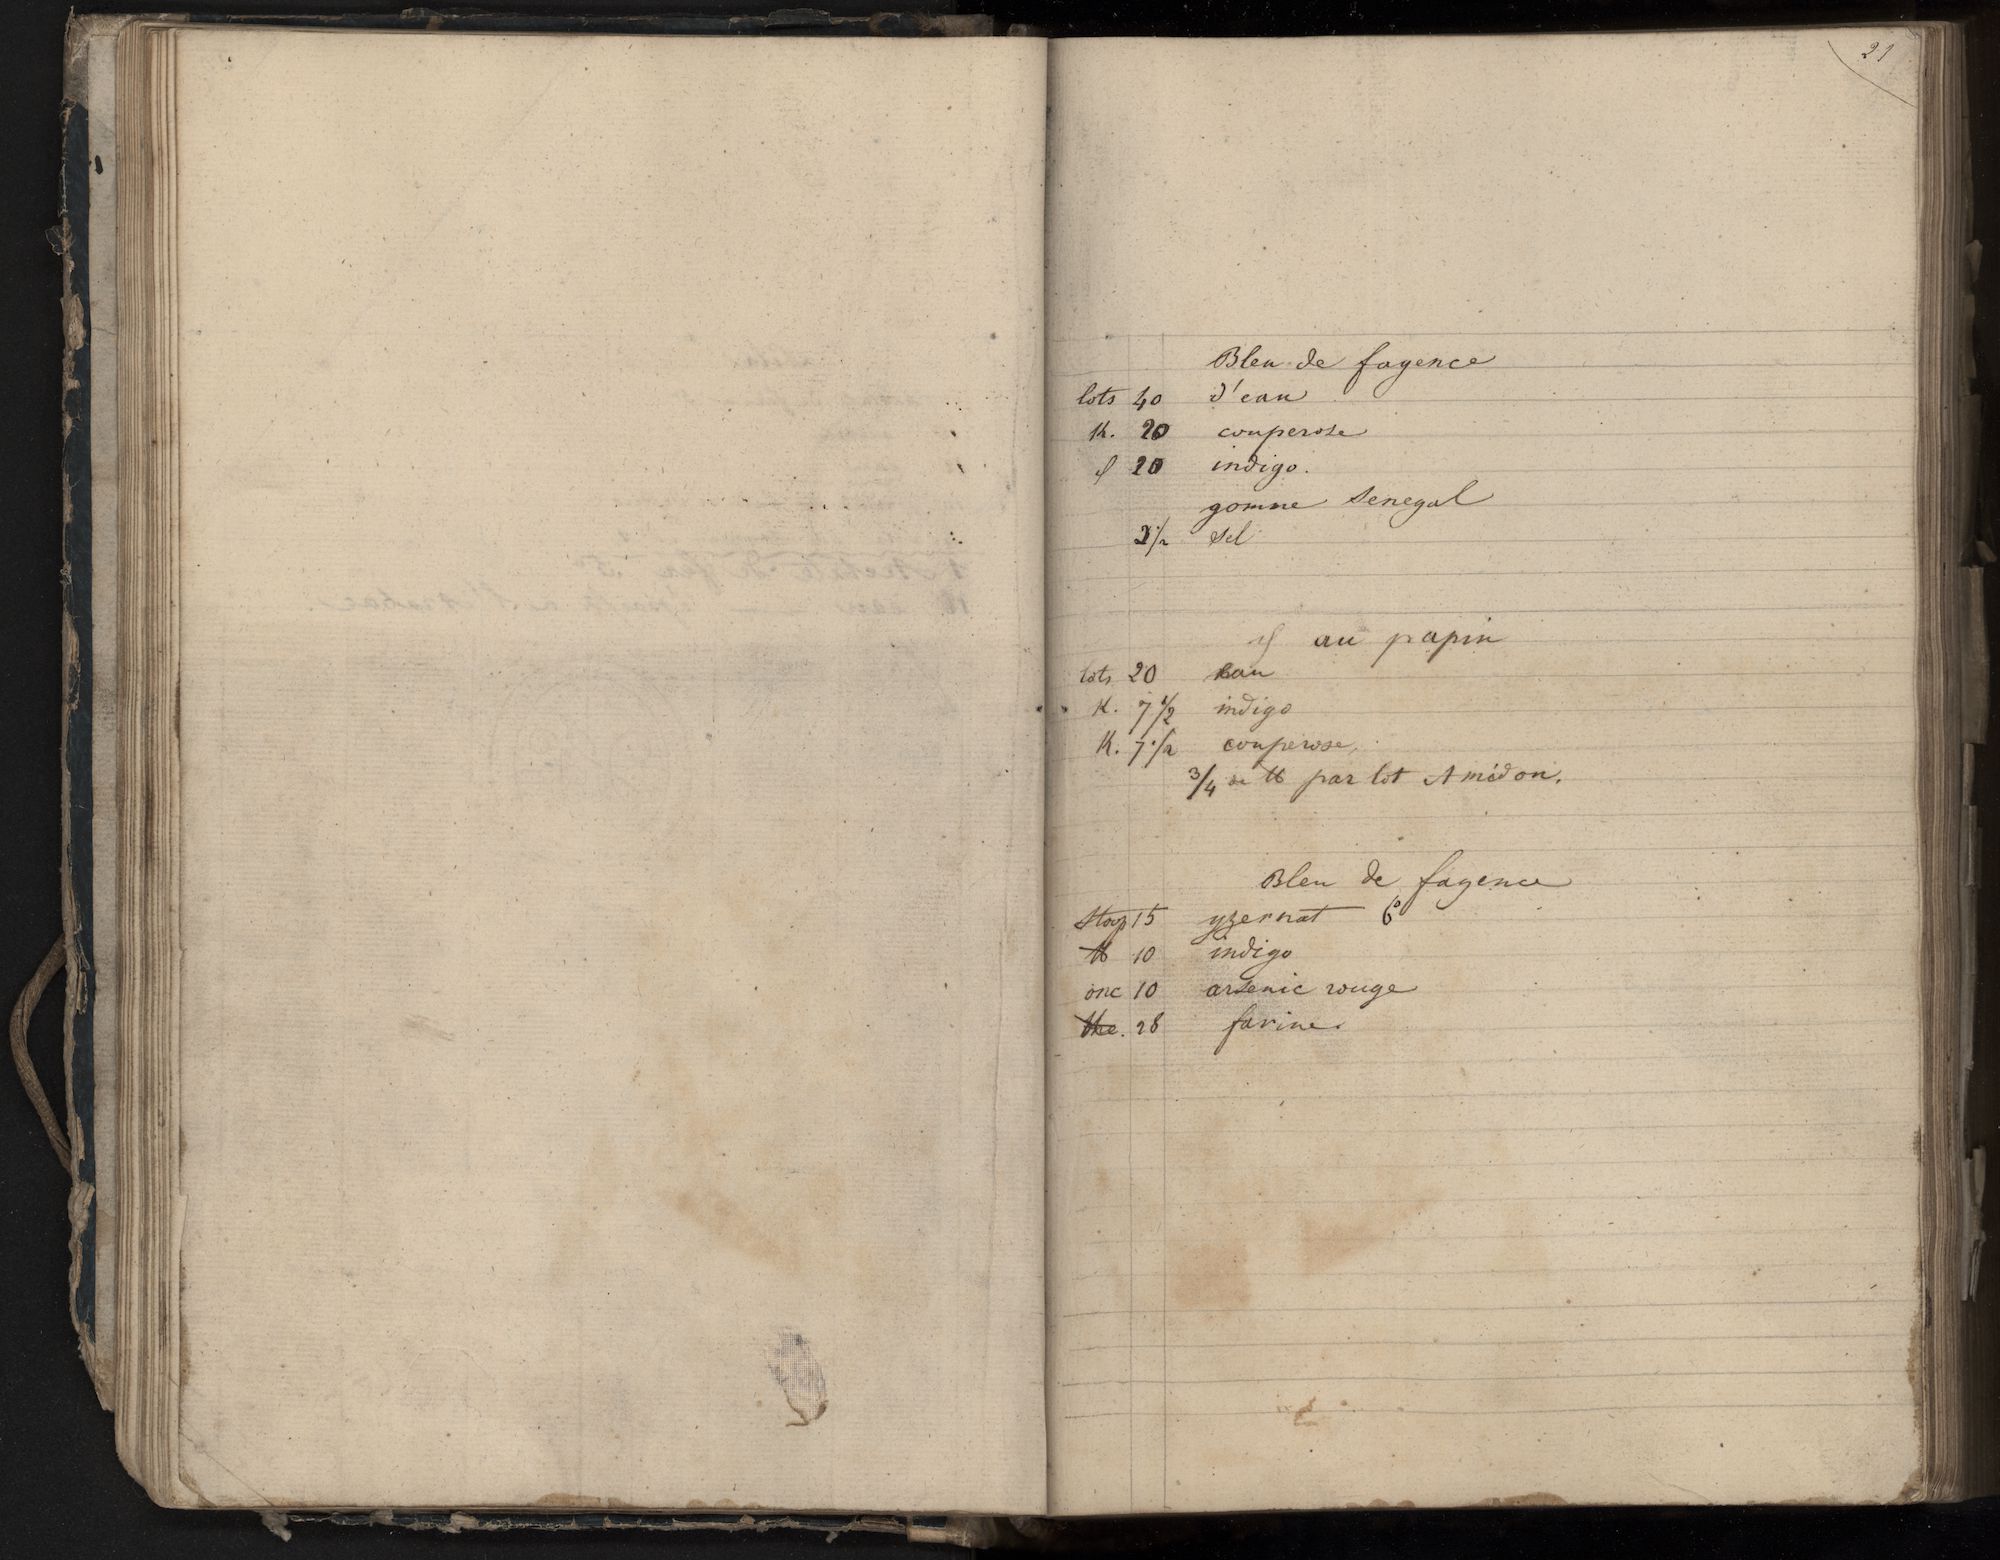 21
Bleu de fayence
lots 40 d'eau
K. 20 couperose
20 indigo.
gomme Senegal
½ sel
au papin
lots 20 Eau
K. 7 1/2 indigo
K. 7 1/2 couperose,
3/4 de ℔ par lot Amidon.
Bleu de fayence
Stoop 15 yzernat 6°
℔ 10 indigo
onc 10 arsenic rouge
28 farine.